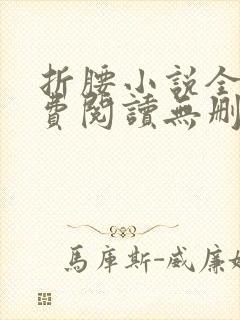 折腰小说全
費閱讀無删
馬庫斯-威廉